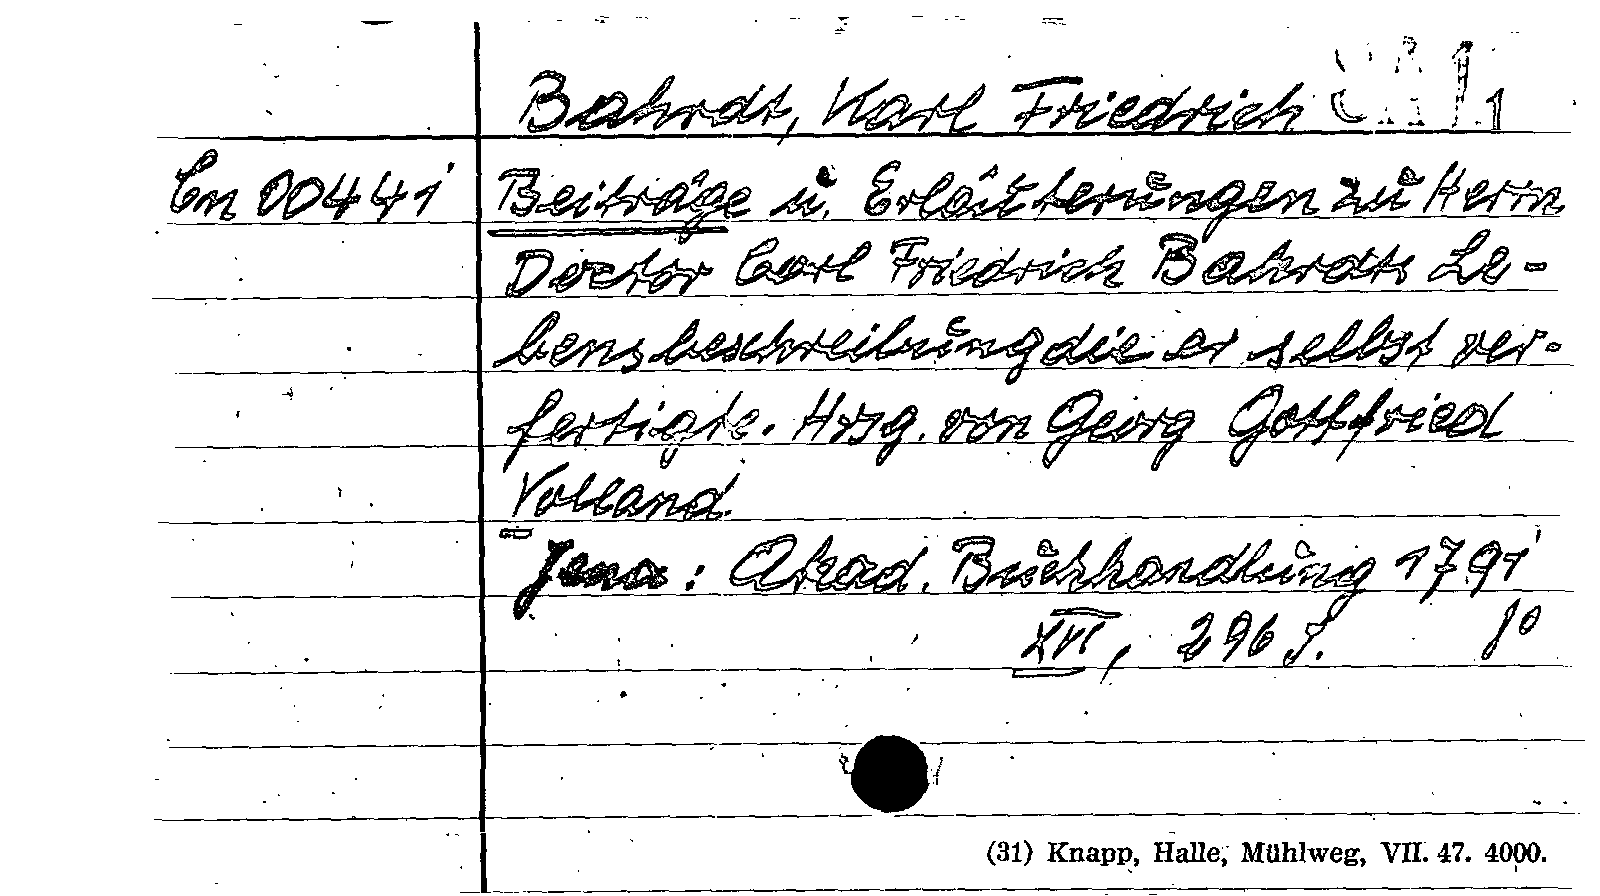 Bahrdt, Karl Friedrich
Cn 00441 Beiträge u. Erläuterungen zu Herrn
Doctor Carl Friedrich Bahrdts Le-
bensbeschreibung die er selbst ver-
fertigte. Hrsg. von Georg Gottfried
Volland.
Jena: Akad. Buchhandlung 1791
XVI, 296 S. 8°
(31) Knapp, Halle, Mühlweg, VII. 47. 4000.